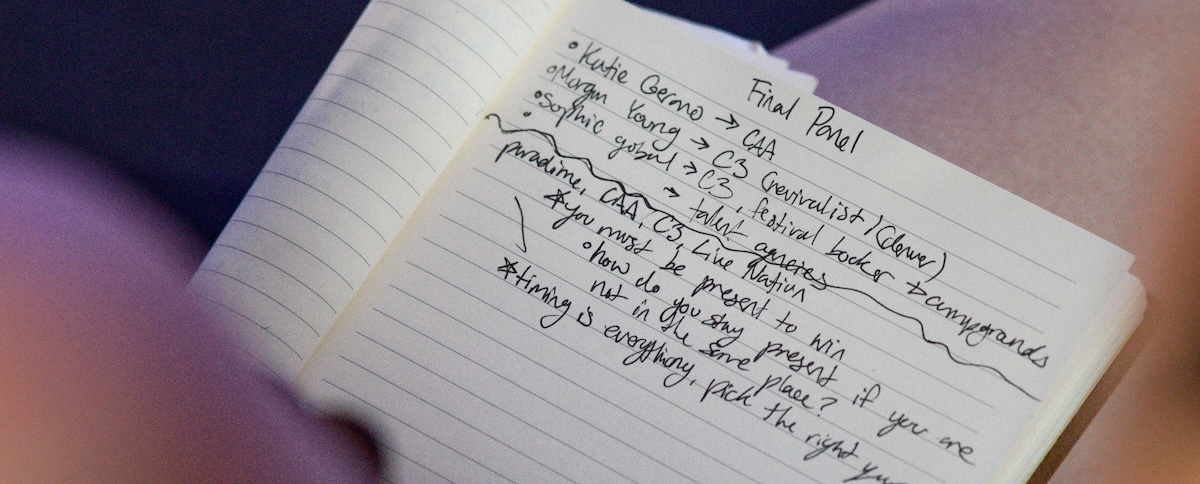 Final Panel
• Katie Germo → CAA
• Morgan Young → C3 (revivalist) (denver)
• Sophie gobal → C3, festival booker
• → talent agencies
paradime, CAA, C3, Live Nation
* you must be present to win
• how do you stay present if you are
not in the same place?
* timing is everything, pick the right